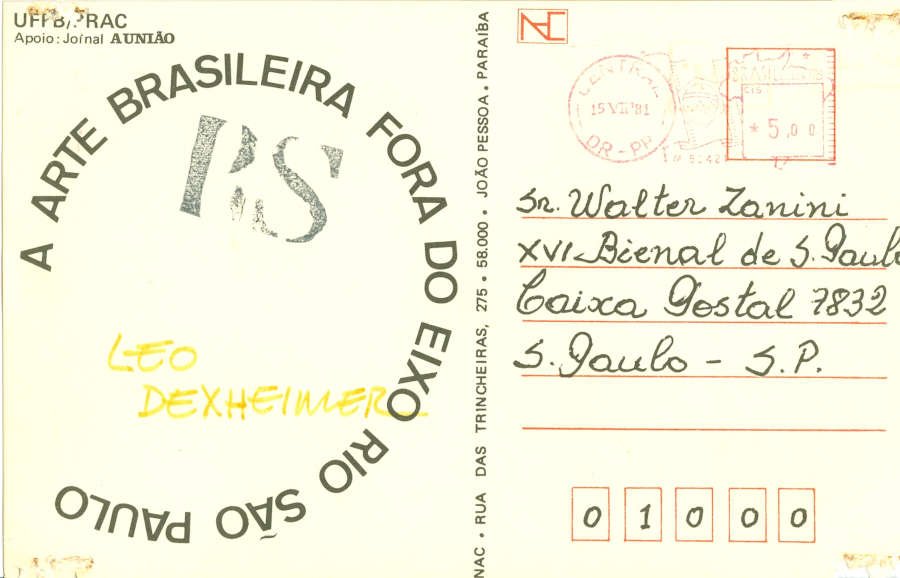 UFPB/PRAC
Apoio: Jornal A UNIÃO
A ARTE BRASILEIRA FORA DO EIXO RIO SÃO PAULO
RS
LEO
DEXHEIMER
NAC • RUA DAS TRINCHEIRAS, 275 • 58.000 • JOÃO PESSOA • PARAÍBA
NAC
CENTRAL
15 VII 81
DR - PB
BRASIL
* 5,00
Sr. Walter Zanini
XVI Bienal de S. Paulo
Caixa Postal 7832
S. Paulo - S.P.
0 1 0 0 0